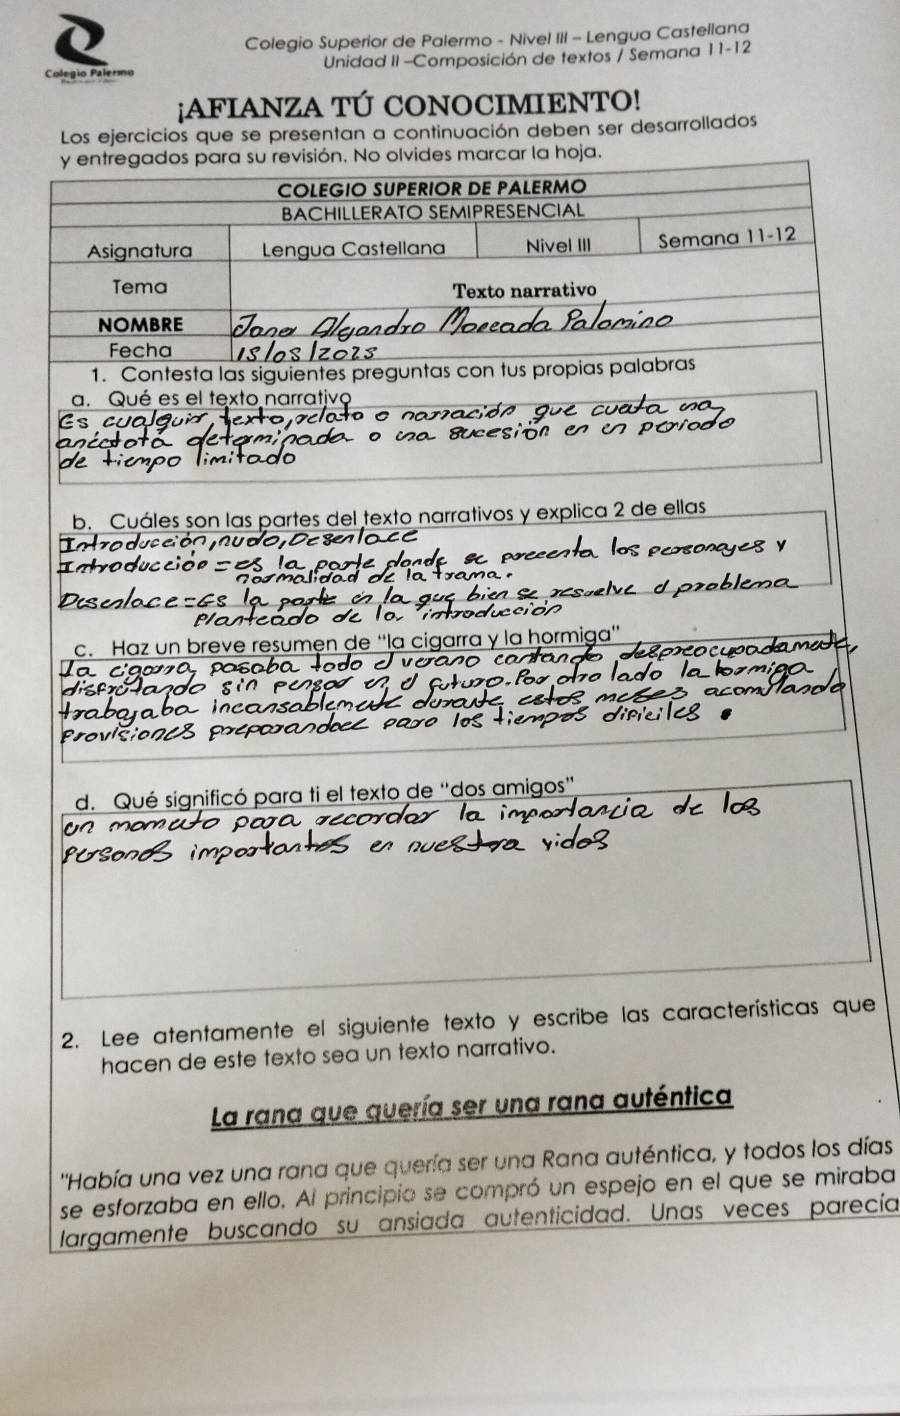 Colegio Superior de Palermo - Nivel III - Lengua Castellana
Unidad II -Composición de textos / Semana 11-12
Colegio Palermo
¡AFIANZA TÚ CONOCIMIENTO!
Los ejercicios que se presentan a continuación deben ser desarrollados
y entregados para su revisión. No olvides marcar la hoja.
COLEGIO SUPERIOR DE PALERMO
BACHILLERATO SEMIPRESENCIAL
Asignatura Lengua Castellana Nivel III Semana 11-12
Tema Texto narrativo
NOMBRE Palomino
Fecha 15/05/2025
1. Contesta las siguientes preguntas con tus propias palabras
a. Qué es el texto narrativo
Es cualquier texto, relato o narración que cueta una
anécdota determinada o una sucesión en un periodo
de tiempo limitado
b. Cuáles son las partes del texto narrativos y explica 2 de ellas
Introducción, nudo, Desenlace
Introducción = es la parte donde se precenta los personajes y
normalidad de la trama.
Desenlace = Es la parte en la que bien se resuelve el problema
planteado de la introducción
c. Haz un breve resumen de "la cigarra y la hormiga"
la cigarra, pasaba todo el verano cantando despreocupadamente,
disfrutando sin pensar en el futuro. Por otro lado la hormiga
trabajaba incansablemente durante estos meses acomulando
provisiones preparandose para los tiempos dificiles.
d. Qué significó para ti el texto de "dos amigos"
un momento para recordar la importancia de las
personas importantes en nuestra vidas
2. Lee atentamente el siguiente texto y escribe las características que
hacen de este texto sea un texto narrativo.
La rana que quería ser una rana auténtica
"Había una vez una rana que quería ser una Rana auténtica, y todos los días
se esforzaba en ello. Al principio se compró un espejo en el que se miraba
largamente buscando su ansiada autenticidad. Unas veces parecía